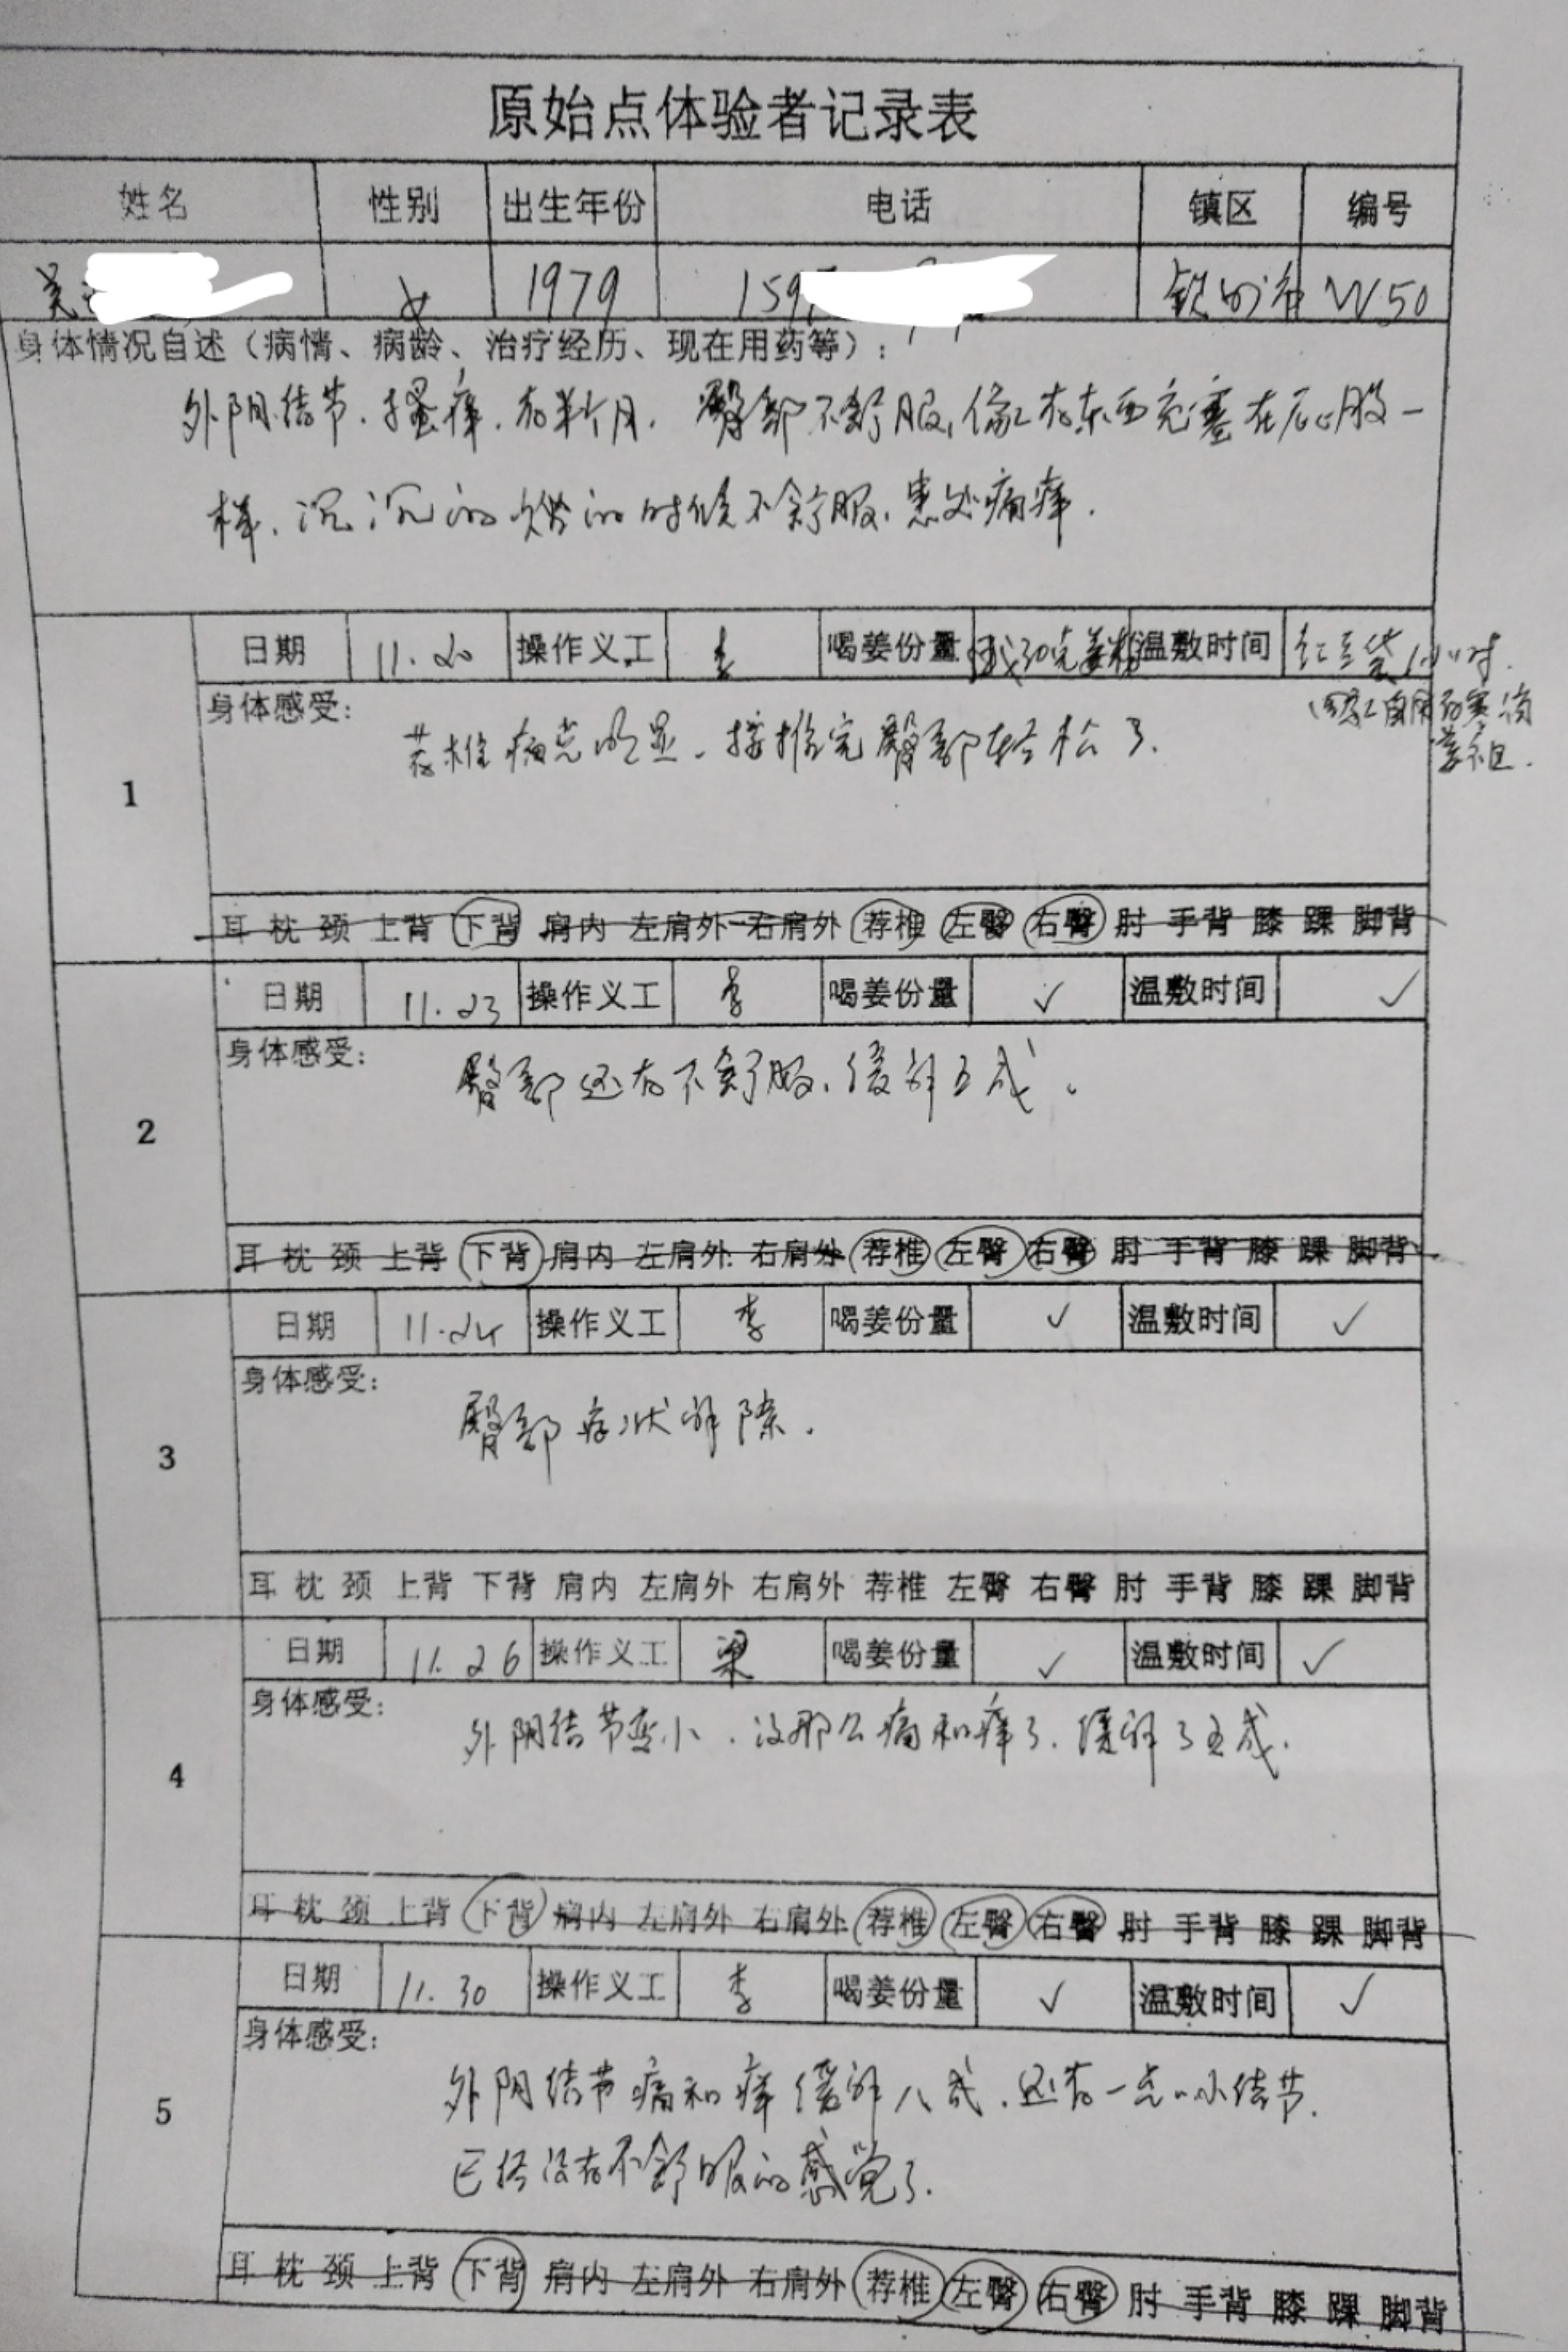 原始点体验者记录表
姓名 性别 出生年份 电话 镇区 编号
女 1979 159 W50
身体情况自述（病情、病龄、治疗经历、现在用药等）：
外阴结节.搔痒.有半个月. 臀部不舒服,像有东西充塞在屁股一
样.沉沉的 的时候不舒服.患处痛痒.
1
日期 11.20 操作义工 李 喝姜份量 30克姜粉 温敷时间 红豆袋1小时.
身体感受：
荐椎痛点明显.按推完臀部轻松了.
耳 枕 颈 上背 下背 肩内 左肩外 右肩外 荐椎 左臀 右臀 肘 手背 膝 踝 脚背
2
日期 11.23 操作义工 李 喝姜份量 ✓ 温敷时间 ✓
身体感受：
臀部还有不舒服.缓解五成.
耳 枕 颈 上背 下背 肩内 左肩外 右肩外 荐椎 左臀 右臀 肘 手背 膝 踝 脚背
3
日期 11.24 操作义工 李 喝姜份量 ✓ 温敷时间 ✓
身体感受：
臀部症状解除.
耳 枕 颈 上背 下背 肩内 左肩外 右肩外 荐椎 左臀 右臀 肘 手背 膝 踝 脚背
4
日期 11.26 操作义工 梁 喝姜份量 ✓ 温敷时间 ✓
身体感受：
外阴结节变小.没那么痛和痒了.缓解了五成.
耳 枕 颈 上背 下背 肩内 左肩外 右肩外 荐椎 左臀 右臀 肘 手背 膝 踝 脚背
5
日期 11.30 操作义工 李 喝姜份量 ✓ 温敷时间 ✓
身体感受：
外阴结节痛和痒缓解八成.还有一点小结节.
已经没有不舒服的感觉了.
耳 枕 颈 上背 下背 肩内 左肩外 右肩外 荐椎 左臀 右臀 肘 手背 膝 踝 脚背